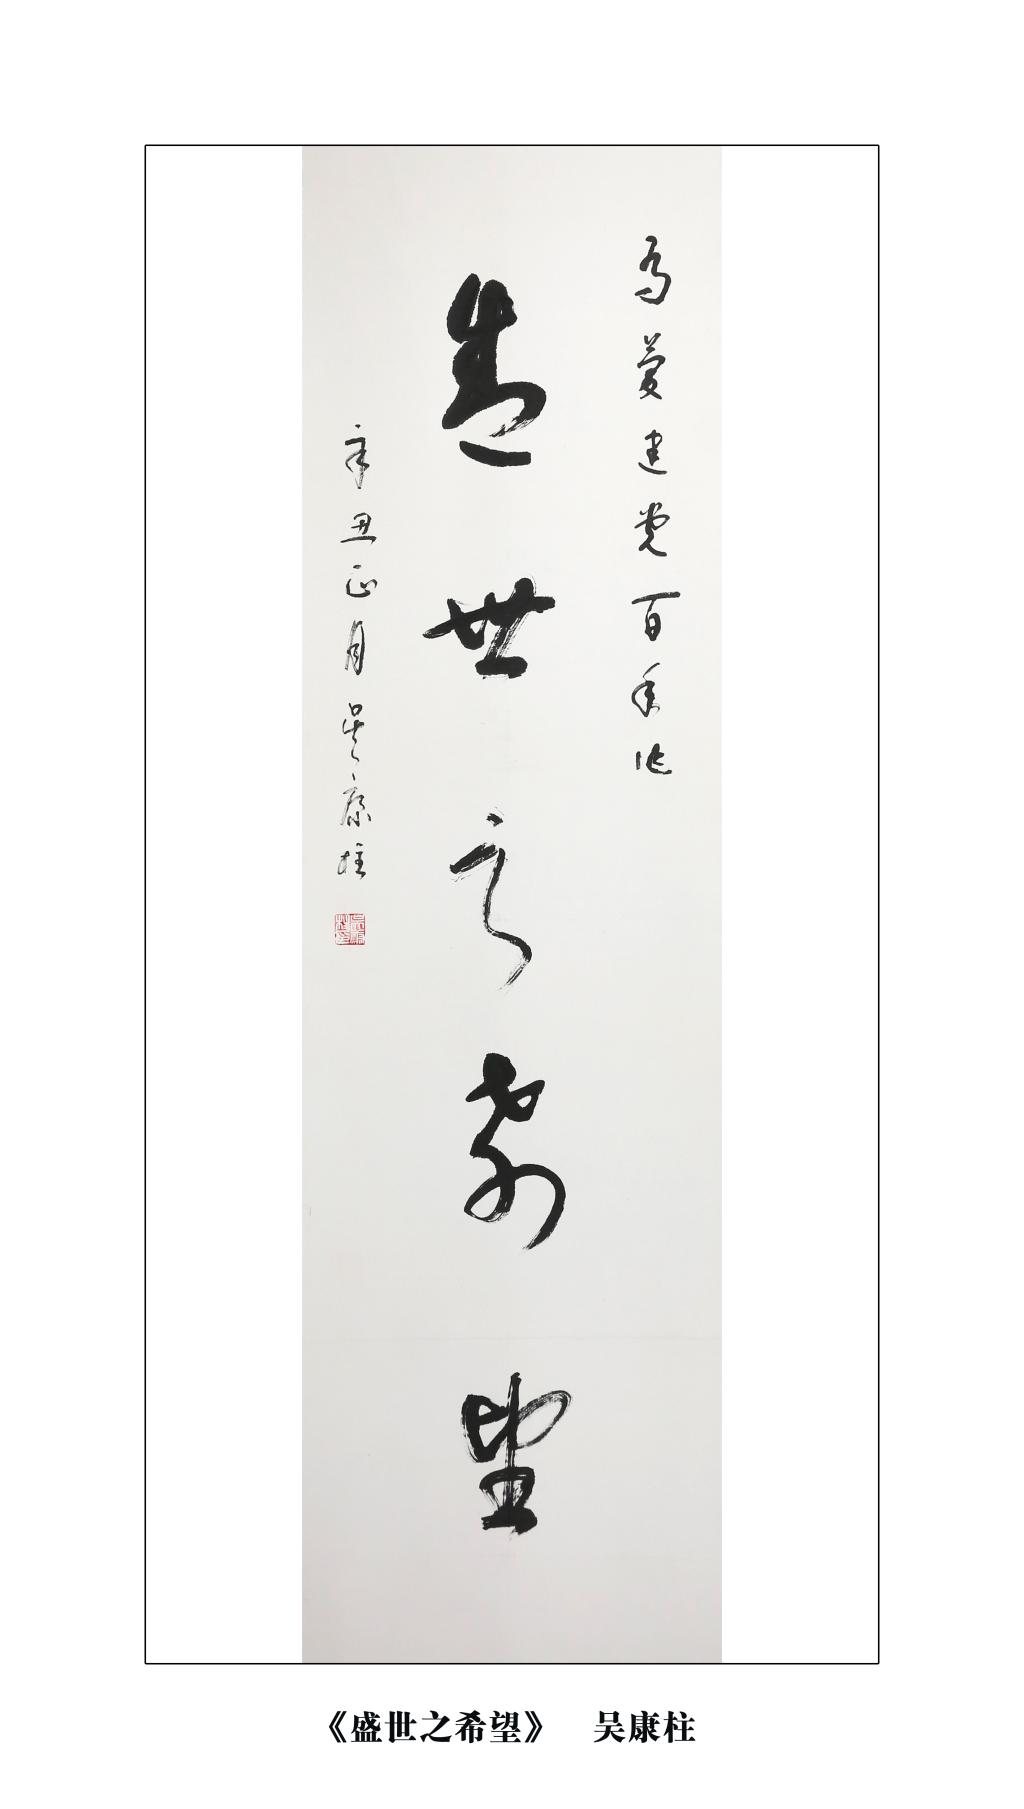 为庆建党百年作
盛世之希望
辛丑正月吴康柱
《盛世之希望》 吴康柱